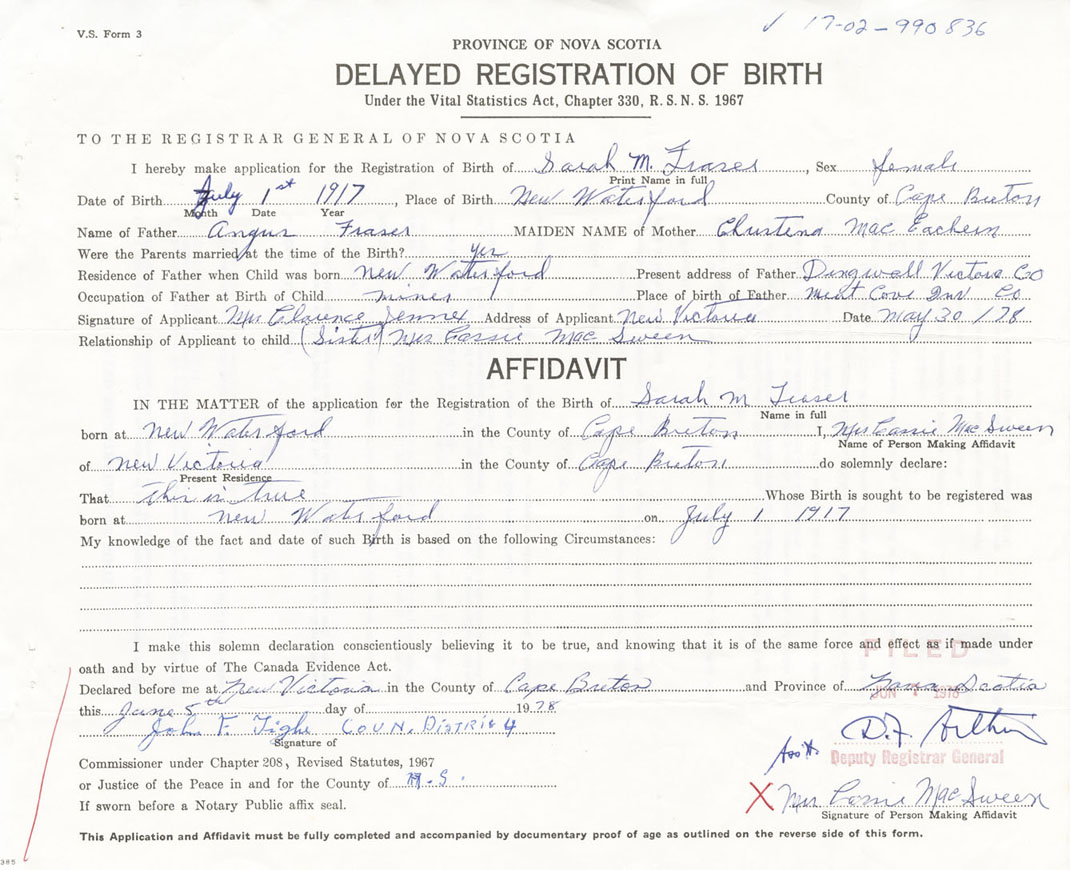 V.S. Form 3
✓ 17-02-990836
PROVINCE OF NOVA SCOTIA
DELAYED REGISTRATION OF BIRTH
Under the Vital Statistics Act, Chapter 330, R. S. N. S. 1967
TO THE REGISTRAR GENERAL OF NOVA SCOTIA
I hereby make application for the Registration of Birth of Sarah M. Fraser, Sex female
Print Name in full
Date of Birth July 1st 1917, Place of Birth New Waterford County of Cape Breton
Month Date Year
Name of Father Angus Fraser MAIDEN NAME of Mother Christena Mac Eachern
Were the Parents married at the time of the Birth? yes
Residence of Father when Child was born New Waterford Present address of Father Dingwell Victoria CO
Occupation of Father at Birth of Child miner Place of birth of Father Meat Cove Inv Co
Signature of Applicant Mrs Clarence Jennex Address of Applicant New Victoria Date May 30 /78
Relationship of Applicant to child (Sister) Mrs Cassie Mac Sween
AFFIDAVIT
IN THE MATTER of the application for the Registration of the Birth of Sarah M Fraser
Name in full
born at New Waterford in the County of Cape Breton I, Mrs Cassie Mac Sween
Name of Person Making Affidavit
of New Victoria in the County of Cape Breton do solemnly declare:
Present Residence
That this is true Whose Birth is sought to be registered was
born at New Waterford on July 1 1917
My knowledge of the fact and date of such Birth is based on the following Circumstances:
I make this solemn declaration conscientiously believing it to be true, and knowing that it is of the same force and effect as if made under
FILED
oath and by virtue of The Canada Evidence Act.
Declared before me at New Victoria in the County of Cape Breton and Province of Nova Scotia
JUN 1978
this June 5th day of 1978
John F. Tighe COUN. DISTRI 4
Signature of
D.F. Arthur
Ass't Deputy Registrar General
Commissioner under Chapter 208, Revised Statutes, 1967
or Justice of the Peace in and for the County of N.S.
X Mrs Cassie MacSween
If sworn before a Notary Public affix seal.
Signature of Person Making Affidavit
This Application and Affidavit must be fully completed and accompanied by documentary proof of age as outlined on the reverse side of this form.
385